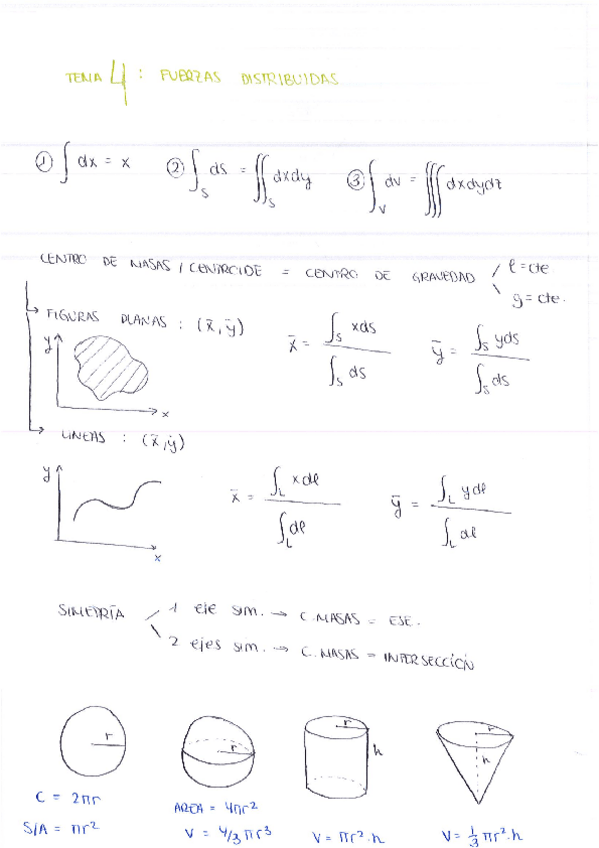 TEMA 4 : FUERZAS DISTRIBUIDAS
① ∫ dx = x ② ∫_S ds = ∬_S dxdy ③ ∫_V dv = ∭ dxdydz
CENTRO DE MASAS / CENTROIDE = CENTRO DE GRAVEDAD / ρ = cte
\ g = cte.
→ FIGURAS PLANAS : (x̄, ȳ) x̄ = ∫_S xds / ∫_S ds ȳ = ∫_S yds / ∫_S ds
y
x
→ LINEAS : (x̄, ȳ)
y
x̄ = ∫_L xdl / ∫_L dl ȳ = ∫_L ydl / ∫_L dl
x
SIMETRÍA / 1 eje sim. → C. MASAS = ESE.
\ 2 ejes sim. → C. MASAS = INTERSECCIÓN
r r r h r h
C = 2πr AREA = 4πr²
S/A = πr² V = 4/3 πr³ V = πr²·h V = 1/3 πr²·h